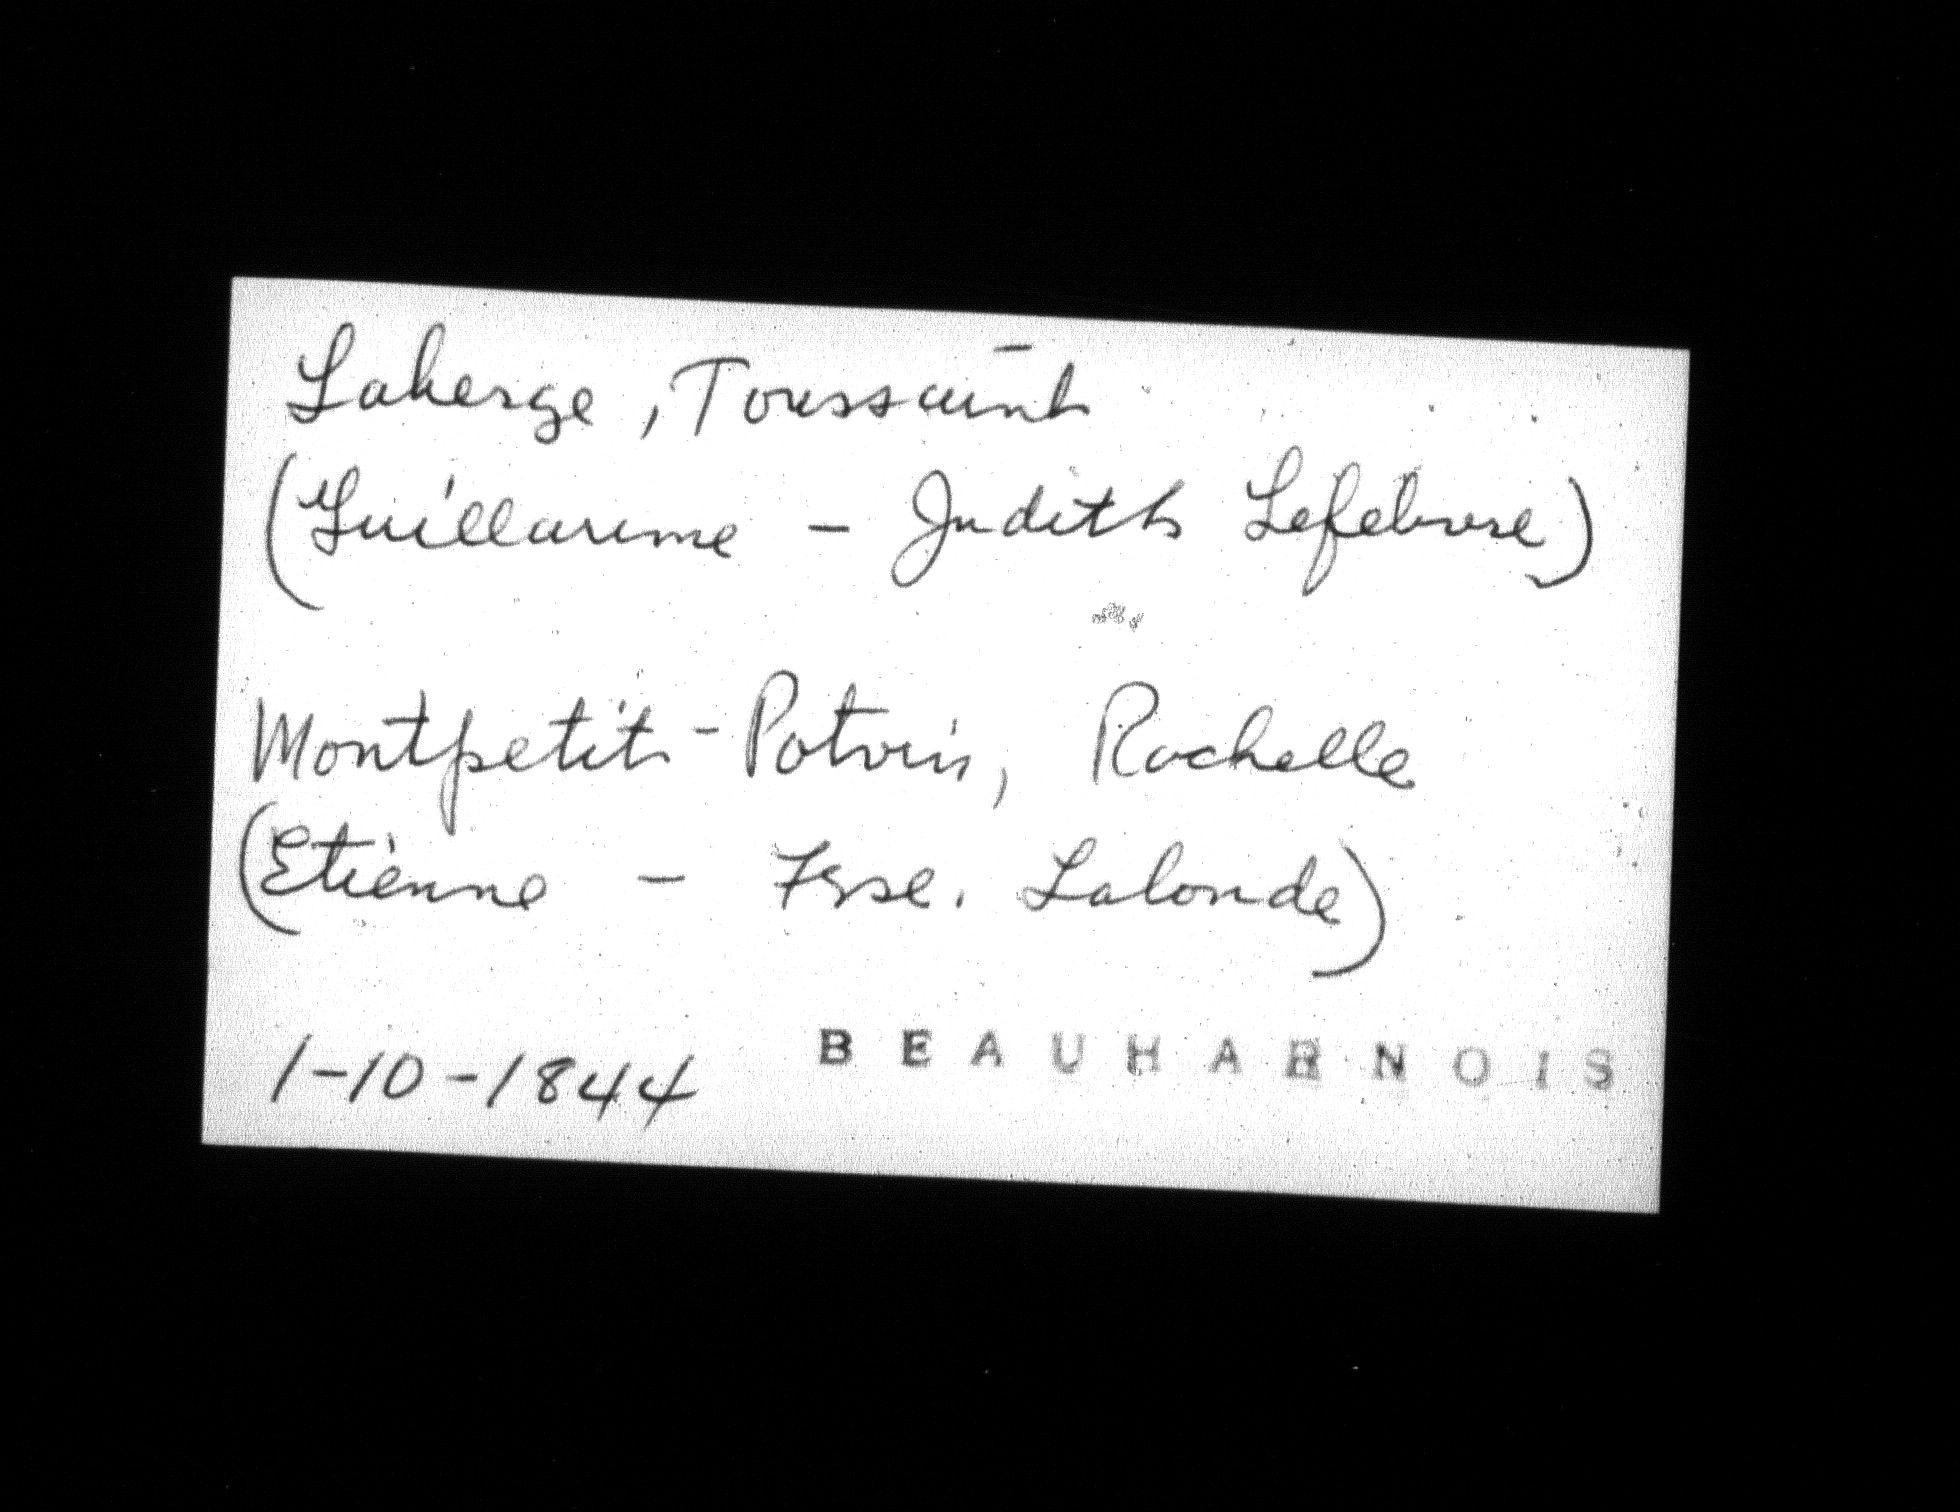 Laberge, Toussaint
(Guillaume - Judith Lefebvre)
Montpetit-Potvin, Rachelle
(Etienne - Frse. Lalonde)
1-10-1844 BEAUHARNOIS